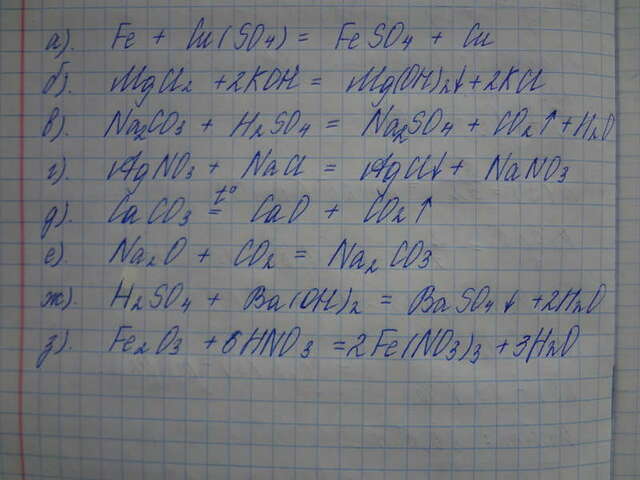 а). Fe + Cu(SO4) = FeSO4 + Cu
б). MgCl2 + 2KOH = Mg(OH)2↓ + 2KCl
в). Na2CO3 + H2SO4 = Na2SO4 + CO2↑ + H2O
г). AgNO3 + NaCl = AgCl↓ + NaNO3
д). CaCO3 =t° CaO + CO2↑
е). Na2O + CO2 = Na2CO3
ж). H2SO4 + Ba(OH)2 = BaSO4↓ + 2H2O
з). Fe2O3 + 6HNO3 = 2Fe(NO3)3 + 3H2O